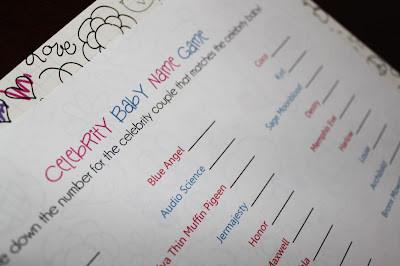 Love
Celebrity Baby Name Game
down the number for the celebrity couple that matches the celebrity baby
Blue Angel
Audio Science
Thin Muffin Pigeen
Jermajesty
Honor
Maxwell
Coco
Kyd
Sage Moonblood
Destry
Memphis Eve
Harlow
Louis
Archibald